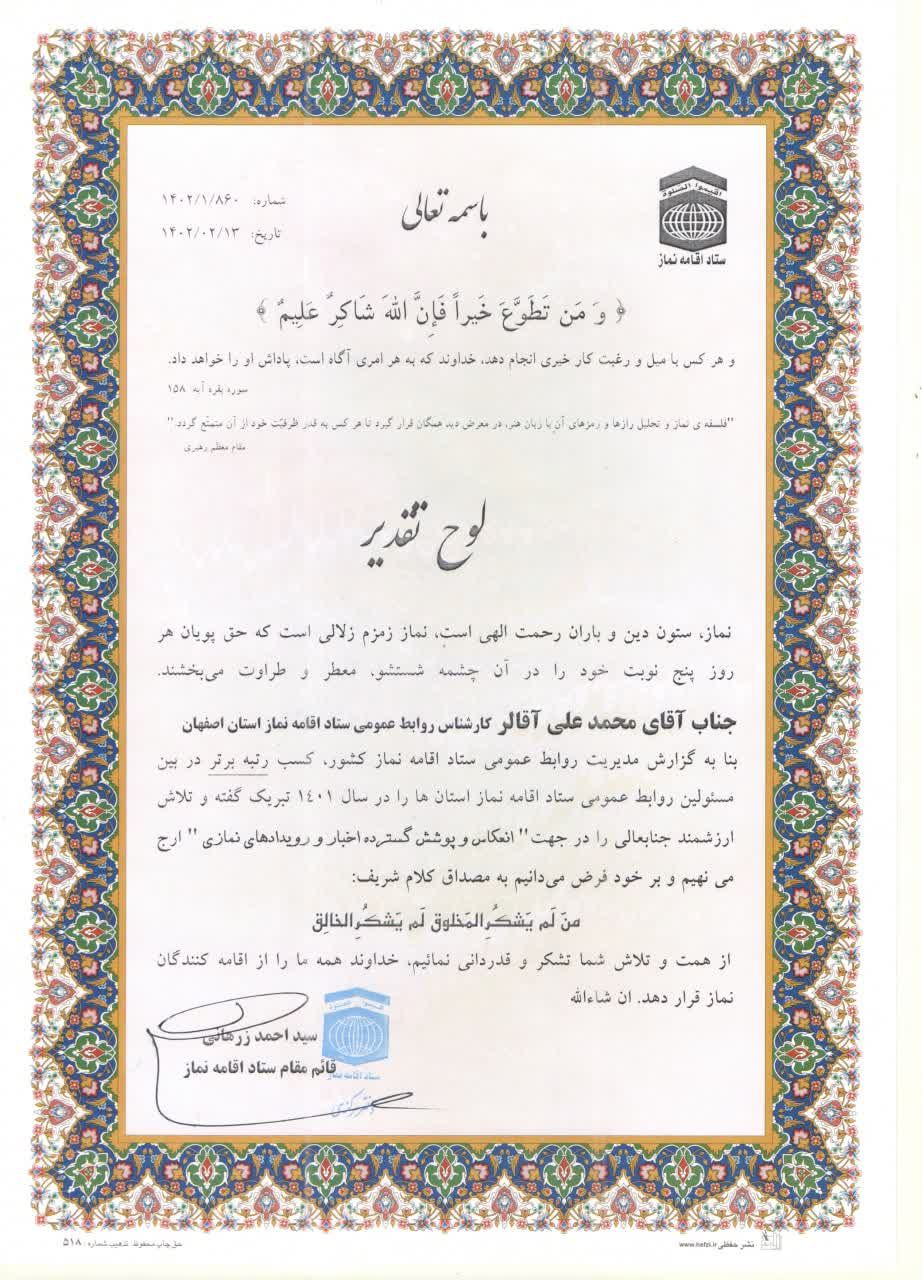 اقیموا الصلوة
ستاد اقامه نماز
باسمه تعالی
شماره: ۱۴۰۲/۱/۸۶۰
تاریخ: ۱۴۰۲/۰۲/۱۳
﴿ وَ مَن تَطَوَّعَ خَیراً فَإِنَّ اللهَ شَاکِرٌ عَلِیمٌ ﴾
و هر کس با میل و رغبت کار خیری انجام دهد، خداوند که به هر امری آگاه است، پاداش او را خواهد داد.
سوره بقره آیه ۱۵۸
"فلسفه ی نماز و تحلیل رازها و رمزهای آن با زبان هنر، در معرض دید همگان قرار گیرد تا هر کس به قدر ظرفیّت خود از آن متمتّع گردد."
مقام معظم رهبری
لوح تقدیر
نماز، ستون دین و باران رحمت الهی است، نماز زمزم زلالی است که حق پویان هر
روز پنج نوبت خود را در آن چشمه شستشو، معطر و طراوت می‌بخشند.
جناب آقای محمد علی آقالر کارشناس روابط عمومی ستاد اقامه نماز استان اصفهان
بنا به گزارش مدیریت روابط عمومی ستاد اقامه نماز کشور، کسب رتبه برتر در بین
مسئولین روابط عمومی ستاد اقامه نماز استان ها را در سال ۱٤۰۱ تبریک گفته و تلاش
ارزشمند جنابعالی را در جهت" انعکاس و پوشش گسترده اخبار و رویدادهای نمازی " ارج
می نهیم و بر خود فرض می‌دانیم به مصداق کلام شریف:
من لَم یَشکُرِ المَخلوق لَم یَشکُرِ الخالِق
از همت و تلاش شما تشکر و قدردانی نمائیم، خداوند همه ما را از اقامه کنندگان
نماز قرار دهد. ان شاءالله
سید احمد زرهانی
قائم مقام ستاد اقامه نماز
اقیموا الصلوة
ستاد اقامه نماز
دفتر مرکزی
نشر حفظی www.hefzi.ir
حق چاپ محفوظ. تذهیب شماره: ۵۱۸